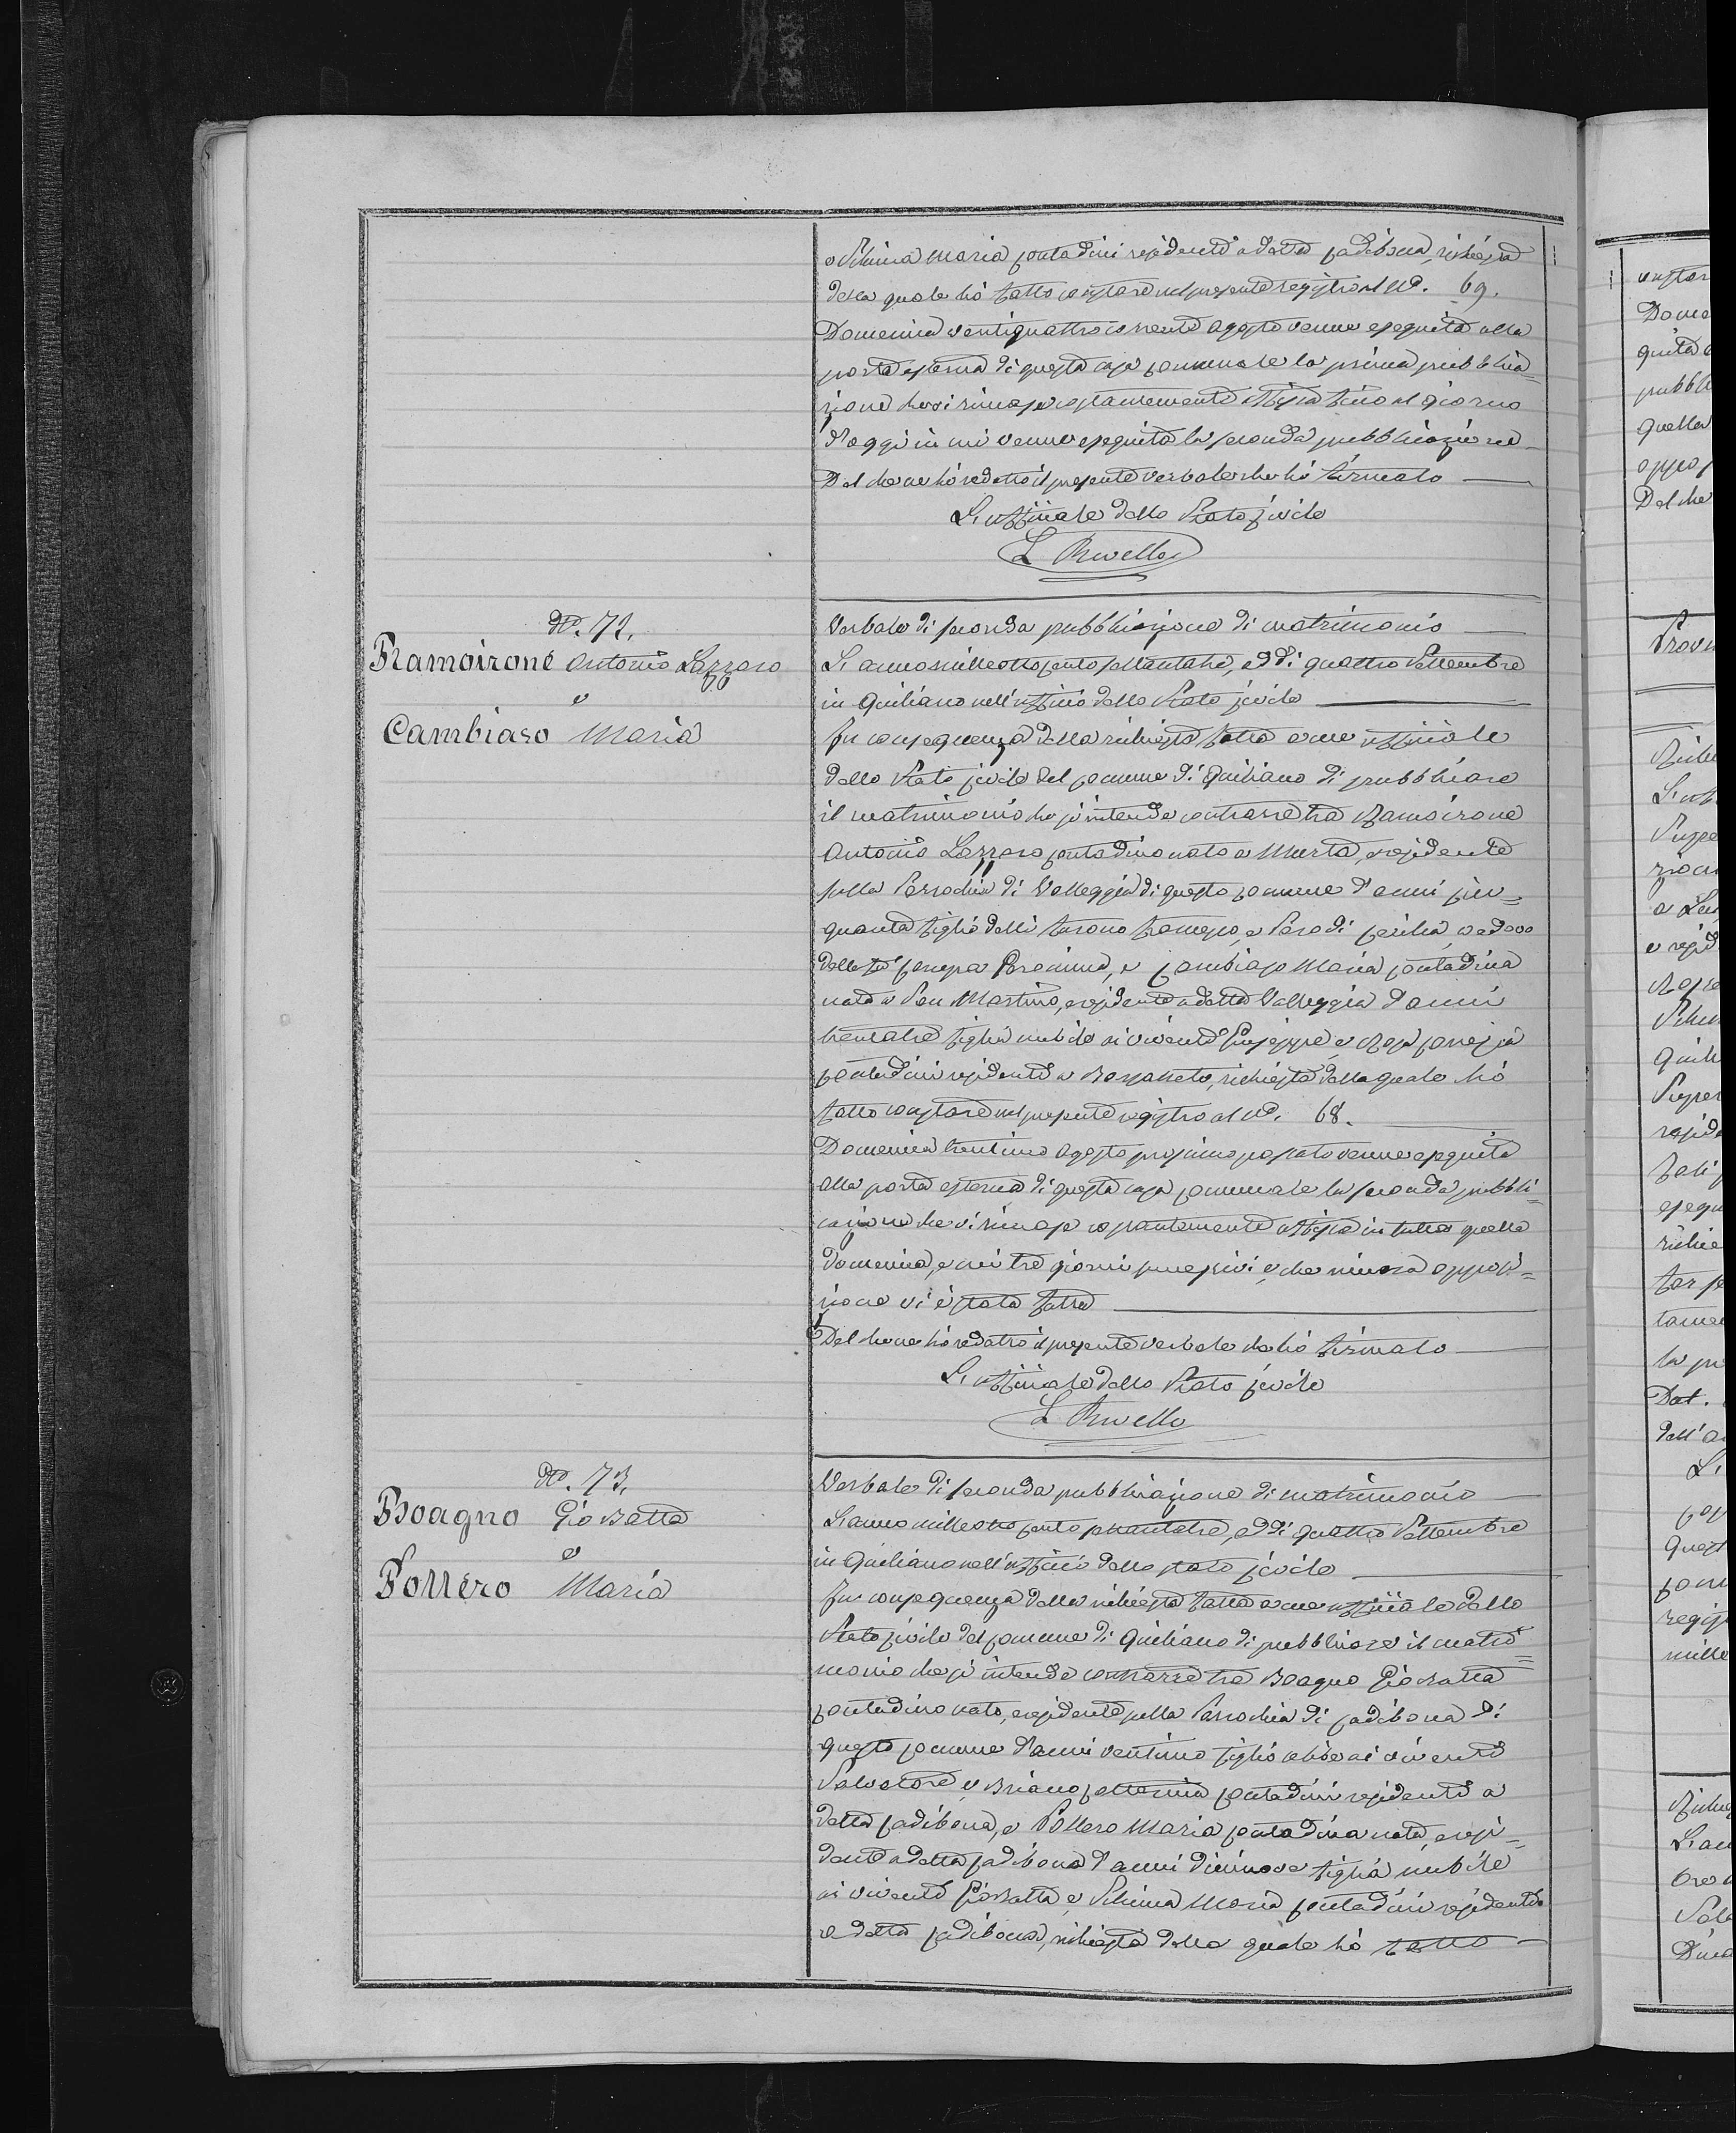 e Schina Maria contadini residenti a detta Cadibona, richiesta
della quale hò fatto constare nel presente registro al N°. 69.
Domenica ventiquattro corrente Agosto venne eseguita alla
porta esterna di questa casa comunale la prima pubblica=
zione che vi rimase costantemente affissa fino al giorno
d'oggi in cui venne eseguita la seconda pubblicazione
Del che ne hò redatto il presente verbale che hò firmato
L'uffiziale dello Stato Civile
L Ruvello
N°. 72.
Ramoirone Antonio Lazzaro
e
Cambiaso Maria
Verbale di seconda pubblicazione di matrimonio
L'anno milleottocento settantatre, addì quattro Settembre
in Quiliano nell'uffizio dello Stato Civile
In conseguenza della richiesta fatta a me uffiziale
dello Stato Civile del Comune di Quiliano di pubblicare
il matrimonio che si intende contrarre tra Ramoirone
Antonio Lazzaro contadino nato a Murta, residente
sulla Parrochia di Valleggia di questo Comune d'anni cin=
quanta figlio delli furono Francesco, e Parodi Cecilia, vedovo
della fu Geronima, e Cambiaso Maria contadina
nata a San Martino, residente a detta Valleggia d'anni
trentatre figlia nubile ai viventi Giuseppe, e Rosa
contadini residenti a Borzaneto, richiesta della quale hò
fatto constare nel presente registro al N°. 68.
Domenica trentuno Agosto prossimo passato venne eseguita
alla porta esterna di questa casa comunale la seconda pubbli=
cazione che vi rimase costantemente affissa in tutta quella
domenica, e nei tre giorni successivi, e che niuna opposi=
zione vi è stata fatta
Del che ne hò redatto il presente verbale che hò firmato
L'uffiziale dello Stato Civile
L Ruvello
N°. 73.
Boagno Gio Batta
e
Pollero Maria
Verbale di seconda pubblicazione di matrimonio
L'anno milleottocento settantatre, addì quattro Settembre
in Quiliano nell'uffizio dello stato Civile
In conseguenza della richiesta fatta a me uffiziale dello
Stato Civile del Comune di Quiliano di pubblicare il matri=
monio che si intende contrarre tra Boagno Gio Batta
contadino nato, e residente sulla Parrochia di Cadibona di
questo Comune d'anni ventuno figlio celibe ai viventi
Salvatore, e Briano Catterina contadini residenti a
detta Cadibona, e Pollero Maria contadina nata, e resi=
dente a detta Cadibona d'anni dicinove figlia nubile
ai viventi Gio Batta, e Schina Maria contadini residenti
a detta Cadibona, richiesta della quale hò fatto